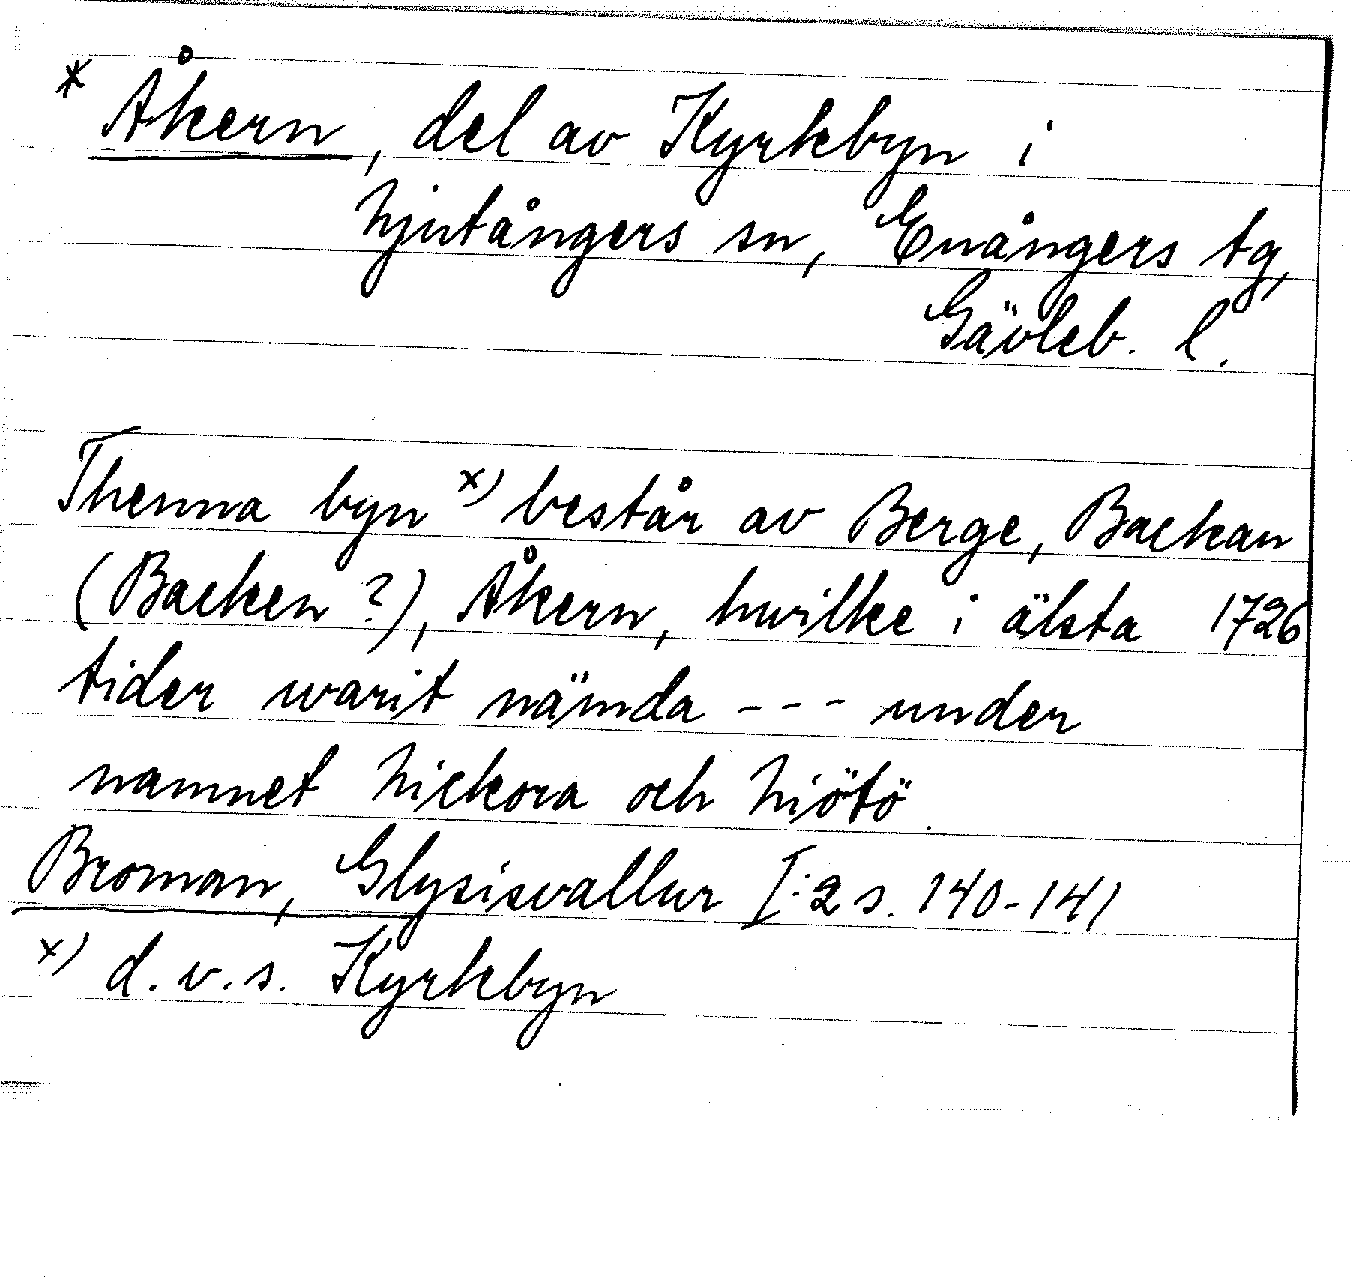 * Åkern, del av Kyrkbyn i
Njutångers sn, Enångers tg,
Gävleb. l.
Thenna byn x) består av Berge, Backan
(Backen ?), Åkern, hwilke i älsta 1726
tider warit nämda - - - under
namnet Nickora och Niötö.
Broman, Glysisvallur I:2 s. 140-141
x) d.v.s. Kyrkbyn